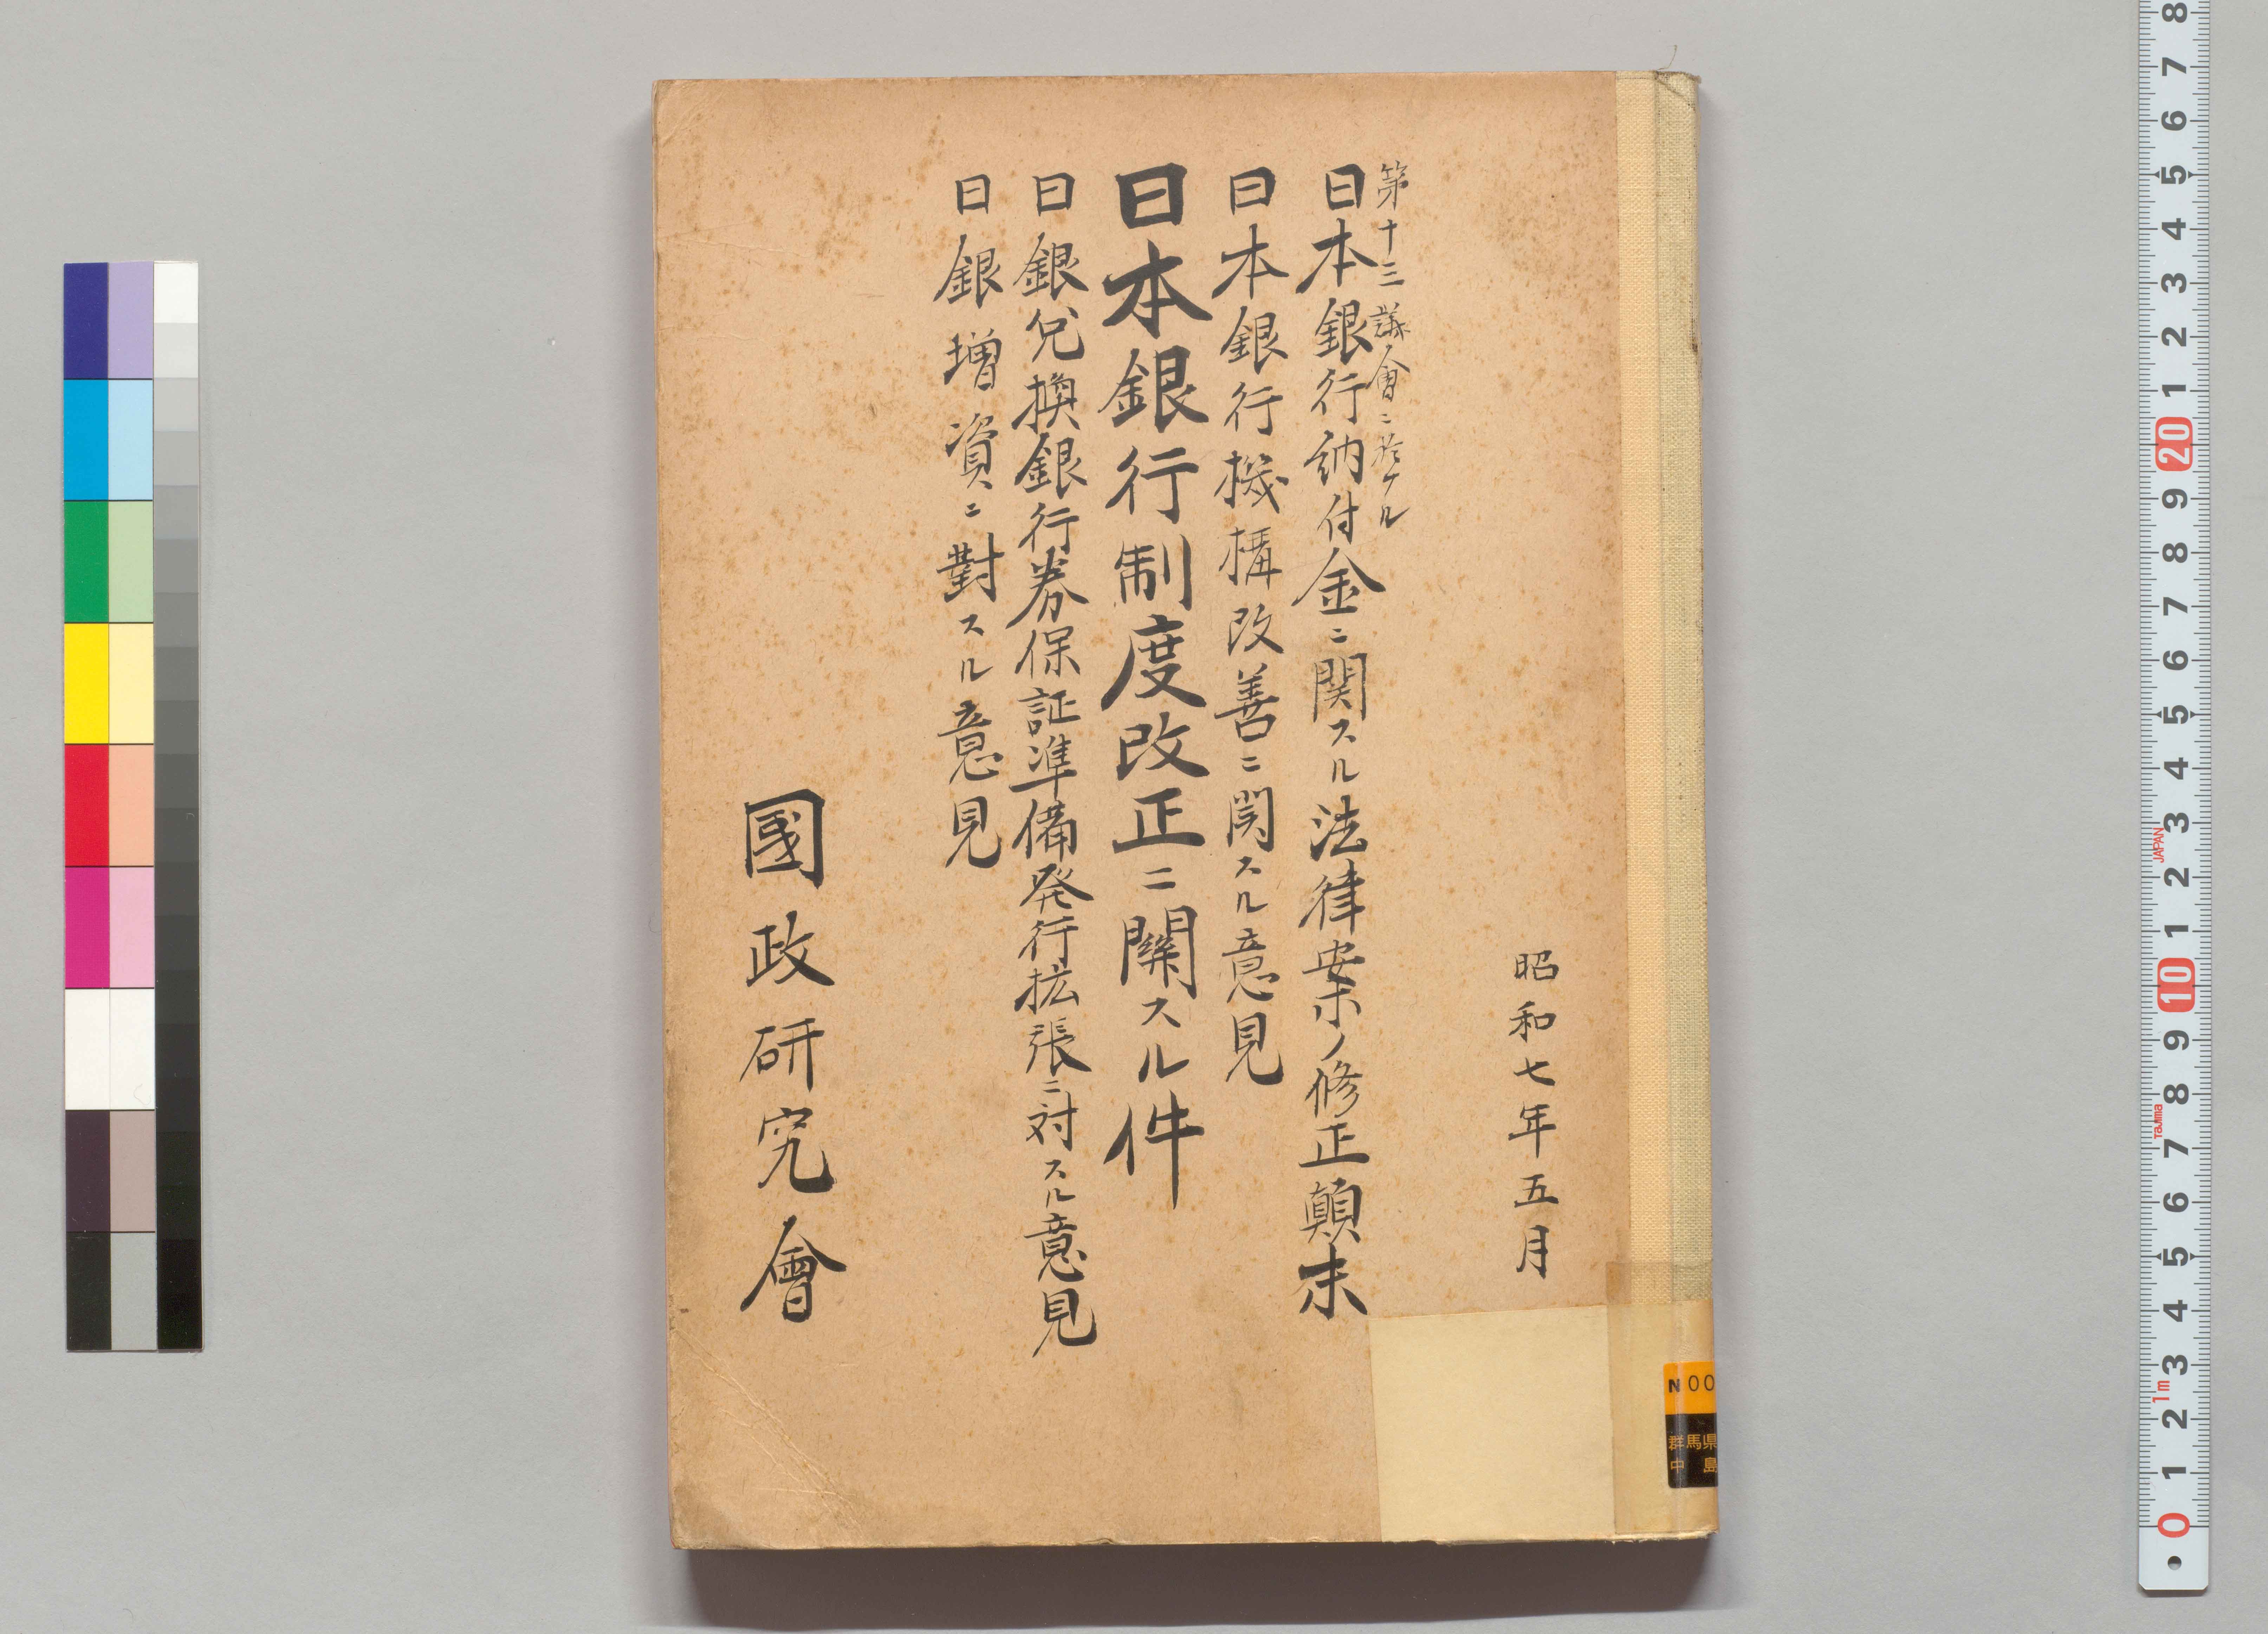 昭和七年五月
第十三議會ニ於ケル
日本銀行納付金ニ関スル法律案ホノ修正顛末
日本銀行機構改善ニ関スル意見
日本銀行制度改正ニ關スル件
日銀兌換銀行券保証準備発行拡張ニ対スル意見
日銀増資ニ對スル意見
國政研究會
N00
群馬県
中島
8
7
6
5
4
3
2
1
20
9
8
7
6
5
4
3
JAPAN
2
1
10
9
8
Tajima
7
6
5
4
3
1m
2
1
0